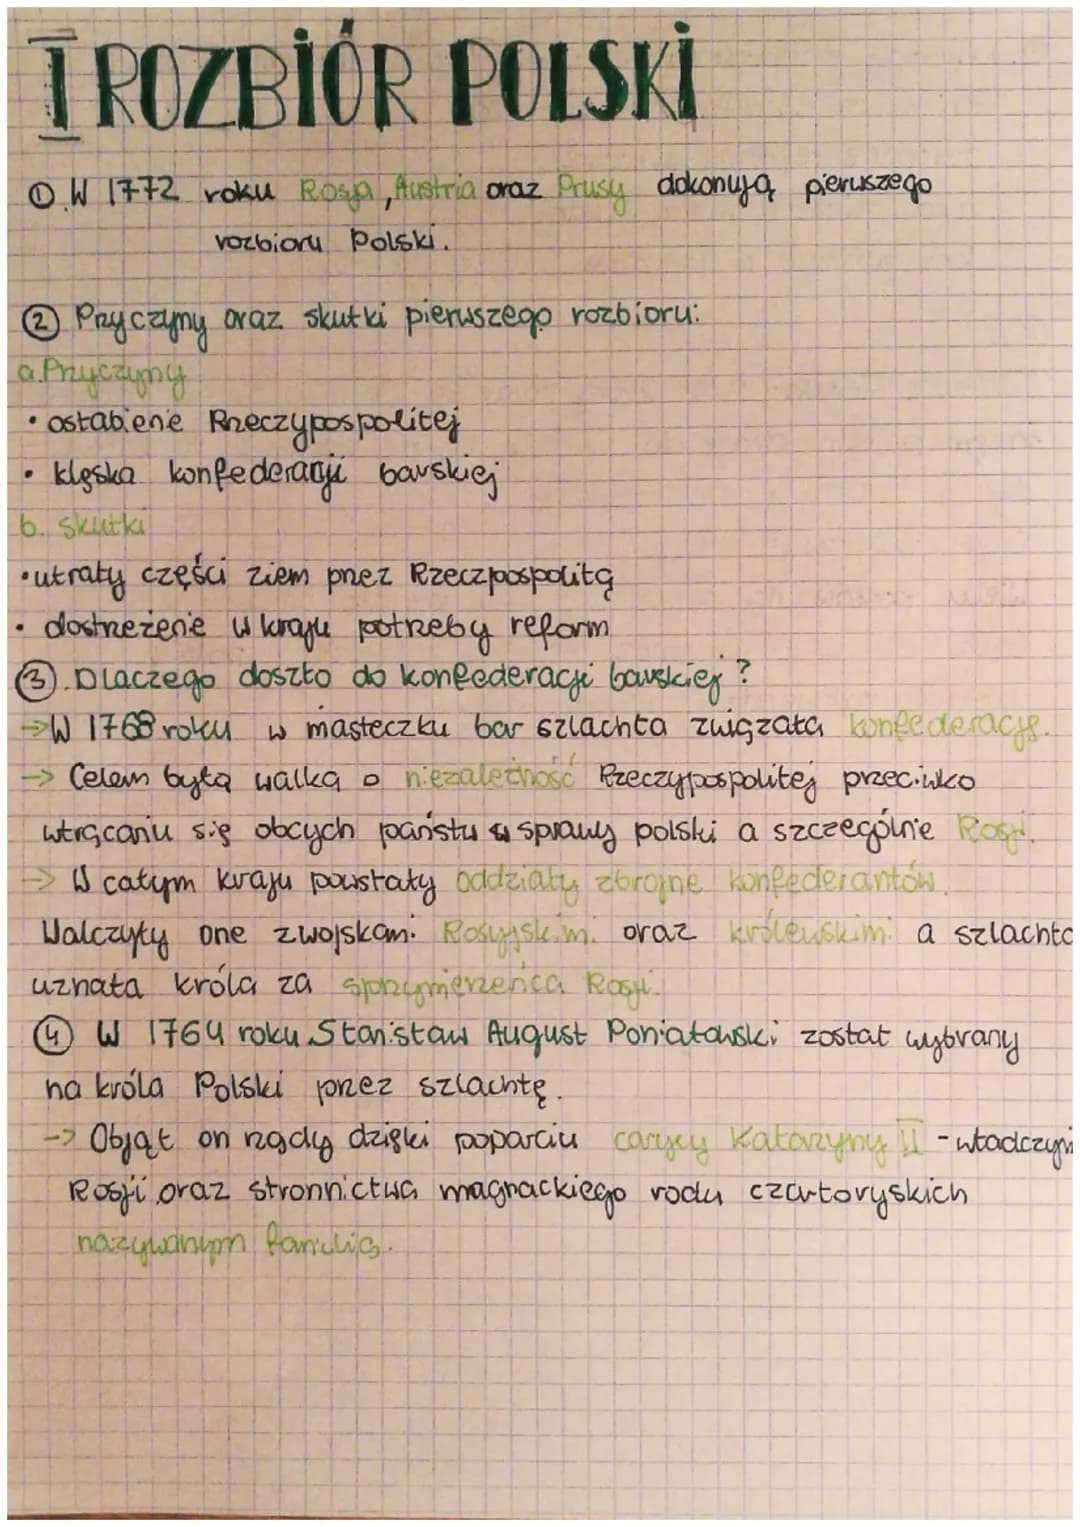 I ROZBIÓR POLSKI
① W 1772 roku Rosja, Austria oraz Prusy dokonują pierwszego
rozbioru Polski.
② Przyczyny oraz skutki pierwszego rozbioru:
a. Przyczyny
• osłabienie Rzeczypospolitej
• klęska konfederacji barskiej
b. skutki
• utraty części ziem przez Rzeczpospolitą
• dostrzeżenie w kraju potrzeby reform
③. Dlaczego doszło do konfederacji barskiej?
→ W 1768 roku w miasteczku bar szlachta związała konfederację.
-> Celem była walka o niezależność Rzeczypospolitej przeciwko
wtrącaniu się obcych państw w sprawy polski a szczególnie Rosji.
-> W całym kraju powstały oddziały zbrojne konfederantów.
Walczyły one z wojskami Rosyjskimi oraz królewskimi a szlachta
uznała króla za sprzymierzeńca Rosji.
④ W 1764 roku Stanisław August Poniatowski został wybrany
na króla Polski przez szlachtę.
-> Objął on rządy dzięki poparciu carycy Katarzyny II - władczyni
Rosji oraz stronnictwa magnackiego rodu czartoryskich
nazywanym familią.